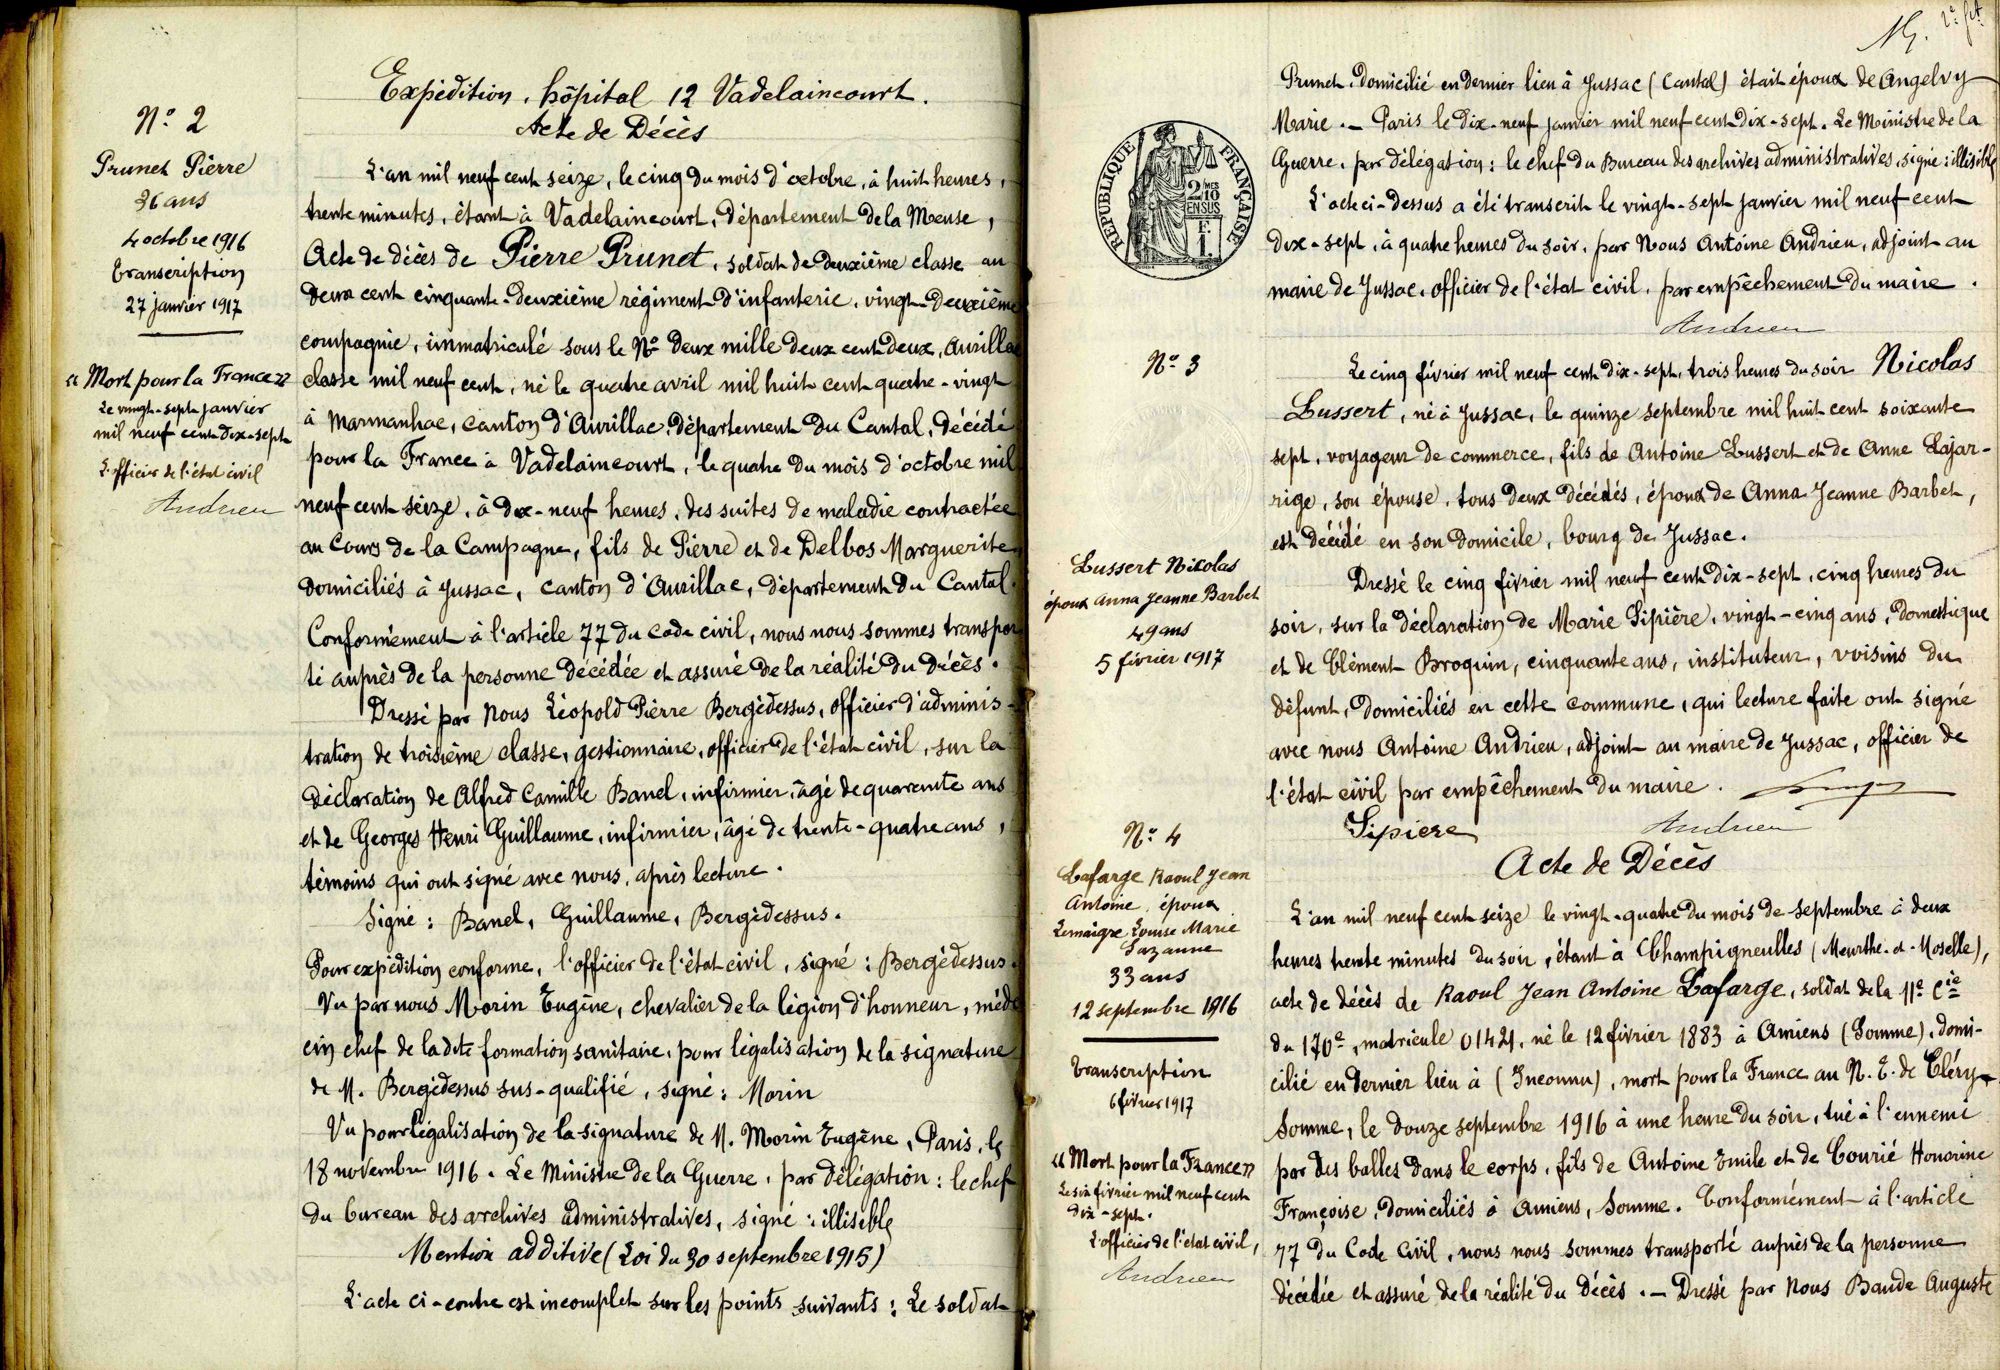 Nº 2
Prunet Pierre
36 ans
4 octobre 1916
Transcription
27 janvier 1917
« Mort pour la France »
Le vingt-sept janvier
mil neuf cent dix-sept
L'officier de l'état civil
Andrieu
Expédition, hôpital 12 Vadelaincourt.
Acte de Décès
L'an mil neuf cent seize, le cinq du mois d'octobre, à huit heures,
trente minutes, étant à Vadelaincourt, département de la Meuse,
Acte de décès de Pierre Prunet, soldat de deuxième classe au
deux cent cinquante-deuxième régiment d'infanterie, vingt-deuxième
compagnie, immatriculé sous le Nº deux mille deux cent deux, Aurillac
classe mil neuf cent, né le quatre avril mil huit cent quatre-vingt
à Marmanhac, canton d'Aurillac, département du Cantal, décédé
pour la France à Vadelaincourt, le quatre du mois d'octobre mil
neuf cent seize, à dix-neuf heures, des suites de maladie contractée
au Cours de la Campagne, fils de Pierre et de Delbos Marguerite
domiciliés à Jussac, canton d'Aurillac, département du Cantal.
Conformément à l'article 77 du code civil, nous nous sommes transpor
té auprès de la personne décédée et assuré de la réalité du décès.
Dressé par Nous Léopold Pierre Bergédessus, officier d'adminis-
tration de troisième classe, gestionnaire, officier de l'état civil, sur la
déclaration de Alfred Camille Banel, infirmier, âgé de quarante ans
et de Georges Henri Guillaume, infirmier, âgé de trente-quatre ans,
témoins qui ont signé avec nous, après lecture.
Signé : Banel, Guillaume, Bergédessus.
Pour expédition conforme, l'officier de l'état civil, signé : Bergédessus.
Vu par nous Morin Eugène, chevalier de la légion d'honneur, méde
cin chef de la dite formation sanitaire, pour légalisation de la signature
de M. Bergédessus sus-qualifié, signé : Morin
Vu pour légalisation de la signature de M. Morin Eugène, Paris, le
18 novembre 1916. Le Ministre de la Guerre, par délégation : le chef
du bureau des archives administratives, signé : illisible
Mention additive (Loi du 30 septembre 1915)
L'acte ci-contre est incomplet sur les points suivants : Le soldat
2e
RÉPUBLIQUE FRANÇAISE
2 MES
10
ENSUS
F.
1.
Prunet, domicilié en dernier lieu à Jussac (Cantal) était époux de Angelvy
Marie. — Paris le dix-neuf janvier mil neuf cent dix-sept. Le Ministre de la
Guerre, par délégation : le chef du Bureau des archives administratives, signé : illisible
L'acte ci-dessus a été transcrit le vingt-sept janvier mil neuf cent
dix-sept, à quatre heures du soir, par Nous Antoine Andrieu, adjoint au
maire de Jussac, officier de l'état civil, par empêchement du maire.
Andrieu
Nº 3
Lussert Nicolas
époux Anna Jeanne Barbet
49 ans
5 février 1917
Le cinq février mil neuf cent dix-sept, trois heures du soir Nicolas
Lussert, né à Jussac, le quinze septembre mil huit cent soixante
sept, voyageur de commerce, fils de Antoine Lussert et de Anne Lajar-
rige, son épouse, tous deux décédés, époux de Anna Jeanne Barbet,
est décédé en son domicile, bourg de Jussac.
Dressé le cinq février mil neuf cent dix-sept, cinq heures du
soir, sur la déclaration de Marie Sipière, vingt-cinq ans, domestique
et de Clément Broquin, cinquante ans, instituteur, voisins du
défunt, domiciliés en cette commune, qui lecture faite ont signé
avec nous Antoine Andrieu, adjoint au maire de Jussac, officier de
l'état civil par empêchement du maire.
Sipiere
Andrieu
Nº 4
Lafarge Raoul Jean
Antoine, époux
Lemaigre Louise Marie
Suzanne
33 ans
12 septembre 1916
Transcription
6 février 1917
« Mort pour la France »
Le six février mil neuf cent
dix-sept.
L'officier de l'état civil,
Andrieu
Acte de Décès
L'an mil neuf cent seize le vingt-quatre du mois de septembre à deux
heures trente minutes du soir, étant à Champigneulles (Meurthe-et-Moselle),
acte de décès de Raoul Jean Antoine Lafarge, soldat de la 11e Cie
du 170e, matricule 01421, né le 12 février 1883 à Amiens (Somme), domi-
cilié en dernier lieu à (Inconnu), mort pour la France au N. E. de Cléry
Somme, le douze septembre 1916 à une heure du soir, tué à l'ennemi
par des balles dans le corps, fils de Antoine Emile et de Courié Honorine
Françoise, domiciliés à Amiens, Somme. Conformément à l'article
77 du Code Civil, nous nous sommes transporté auprès de la personne
décédée et assuré de la réalité du décès. — Dressé par Nous Bande Auguste